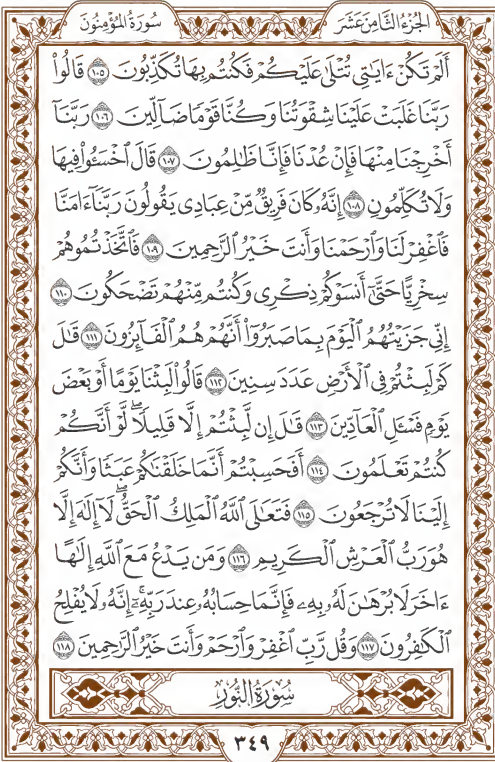 سُورَةُ المُؤْمِنُونَ الجُزْءُ الثَّامِنَ عَشَرَ
أَلَمْ تَكُنْ ءَايَٰتِى تُتْلَىٰ عَلَيْكُمْ فَكُنتُم بِهَا تُكَذِّبُونَ ١٠٥ قَالُوا۟
رَبَّنَا غَلَبَتْ عَلَيْنَا شِقْوَتُنَا وَكُنَّا قَوْمًا ضَآلِّينَ ١٠٦ رَبَّنَآ
أَخْرِجْنَا مِنْهَا فَإِنْ عُدْنَا فَإِنَّا ظَٰلِمُونَ ١٠٧ قَالَ ٱخْسَـُٔوا۟ فِيهَا
وَلَا تُكَلِّمُونِ ١٠٨ إِنَّهُۥ كَانَ فَرِيقٌ مِّنْ عِبَادِى يَقُولُونَ رَبَّنَآ ءَامَنَّا
فَٱغْفِرْ لَنَا وَٱرْحَمْنَا وَأَنتَ خَيْرُ ٱلرَّٰحِمِينَ ١٠٩ فَٱتَّخَذْتُمُوهُمْ
سِخْرِيًّا حَتَّىٰٓ أَنسَوْكُمْ ذِكْرِى وَكُنتُم مِّنْهُمْ تَضْحَكُونَ ١١٠
إِنِّى جَزَيْتُهُمُ ٱلْيَوْمَ بِمَا صَبَرُوٓا۟ أَنَّهُمْ هُمُ ٱلْفَآئِزُونَ ١١١ قَٰلَ
كَمْ لَبِثْتُمْ فِى ٱلْأَرْضِ عَدَدَ سِنِينَ ١١٢ قَالُوا۟ لَبِثْنَا يَوْمًا أَوْ بَعْضَ
يَوْمٍ فَسْـَٔلِ ٱلْعَآدِّينَ ١١٣ قَٰلَ إِن لَّبِثْتُمْ إِلَّا قَلِيلًا ۖ لَّوْ أَنَّكُمْ
كُنتُمْ تَعْلَمُونَ ١١٤ أَفَحَسِبْتُمْ أَنَّمَا خَلَقْنَٰكُمْ عَبَثًا وَأَنَّكُمْ
إِلَيْنَا لَا تُرْجَعُونَ ١١٥ فَتَعَٰلَى ٱللَّهُ ٱلْمَلِكُ ٱلْحَقُّ ۖ لَآ إِلَٰهَ إِلَّا
هُوَ رَبُّ ٱلْعَرْشِ ٱلْكَرِيمِ ١١٦ وَمَن يَدْعُ مَعَ ٱللَّهِ إِلَٰهًا
ءَاخَرَ لَا بُرْهَٰنَ لَهُۥ بِهِۦ فَإِنَّمَا حِسَابُهُۥ عِندَ رَبِّهِۦٓ ۚ إِنَّهُۥ لَا يُفْلِحُ
ٱلْكَٰفِرُونَ ١١٧ وَقُل رَّبِّ ٱغْفِرْ وَٱرْحَمْ وَأَنتَ خَيْرُ ٱلرَّٰحِمِينَ ١١٨
سُورَةُ النُّورِ
٣٤٩